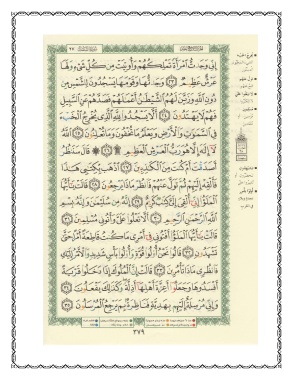 إِنِّي وَجَدتُّ امْرَأَةً تَمْلِكُهُمْ وَأُوتِيَتْ مِن كُلِّ شَيْءٍ وَلَهَا
عَرْشٌ عَظِيمٌ ٢٣ وَجَدتُّهَا وَقَوْمَهَا يَسْجُدُونَ لِلشَّمْسِ مِن
دُونِ اللَّهِ وَزَيَّنَ لَهُمُ الشَّيْطَانُ أَعْمَالَهُمْ فَصَدَّهُمْ عَنِ السَّبِيلِ
فَهُمْ لَا يَهْتَدُونَ ٢٤ أَلَّا يَسْجُدُوا لِلَّهِ الَّذِي يُخْرِجُ الْخَبْءَ
فِي السَّمَاوَاتِ وَالْأَرْضِ وَيَعْلَمُ مَا تُخْفُونَ وَمَا تُعْلِنُونَ ٢٥ اللَّهُ
لَا إِلَهَ إِلَّا هُوَ رَبُّ الْعَرْشِ الْعَظِيمِ ۩ ٢٦ ۞ قَالَ سَنَنظُرُ
أَصَدَقْتَ أَمْ كُنتَ مِنَ الْكَاذِبِينَ ٢٧ اذْهَب بِّكِتَابِي هَذَا
فَأَلْقِهْ إِلَيْهِمْ ثُمَّ تَوَلَّ عَنْهُمْ فَانظُرْ مَاذَا يَرْجِعُونَ ٢٨ قَالَتْ يَا أَيُّهَا
الْمَلَأُ إِنِّي أُلْقِيَ إِلَيَّ كِتَابٌ كَرِيمٌ ٢٩ إِنَّهُ مِن سُلَيْمَانَ وَإِنَّهُ بِسْمِ
اللَّهِ الرَّحْمَنِ الرَّحِيمِ ٣٠ أَلَّا تَعْلُوا عَلَيَّ وَأْتُونِي مُسْلِمِينَ ٣١
قَالَتْ يَا أَيُّهَا الْمَلَأُ أَفْتُونِي فِي أَمْرِي مَا كُنتُ قَاطِعَةً أَمْرًا حَتَّى
تَشْهَدُونِ ٣٢ قَالُوا نَحْنُ أُولُو قُوَّةٍ وَأُولُو بَأْسٍ شَدِيدٍ وَالْأَمْرُ إِلَيْكِ
فَانظُرِي مَاذَا تَأْمُرِينَ ٣٣ قَالَتْ إِنَّ الْمُلُوكَ إِذَا دَخَلُوا قَرْيَةً
أَفْسَدُوهَا وَجَعَلُوا أَعِزَّةَ أَهْلِهَا أَذِلَّةً وَكَذَلِكَ يَفْعَلُونَ ٣٤
وَإِنِّي مُرْسِلَةٌ إِلَيْهِم بِهَدِيَّةٍ فَنَاظِرَةٌ بِمَ يَرْجِعُ الْمُرْسَلُونَ ٣٥
٣٧٩